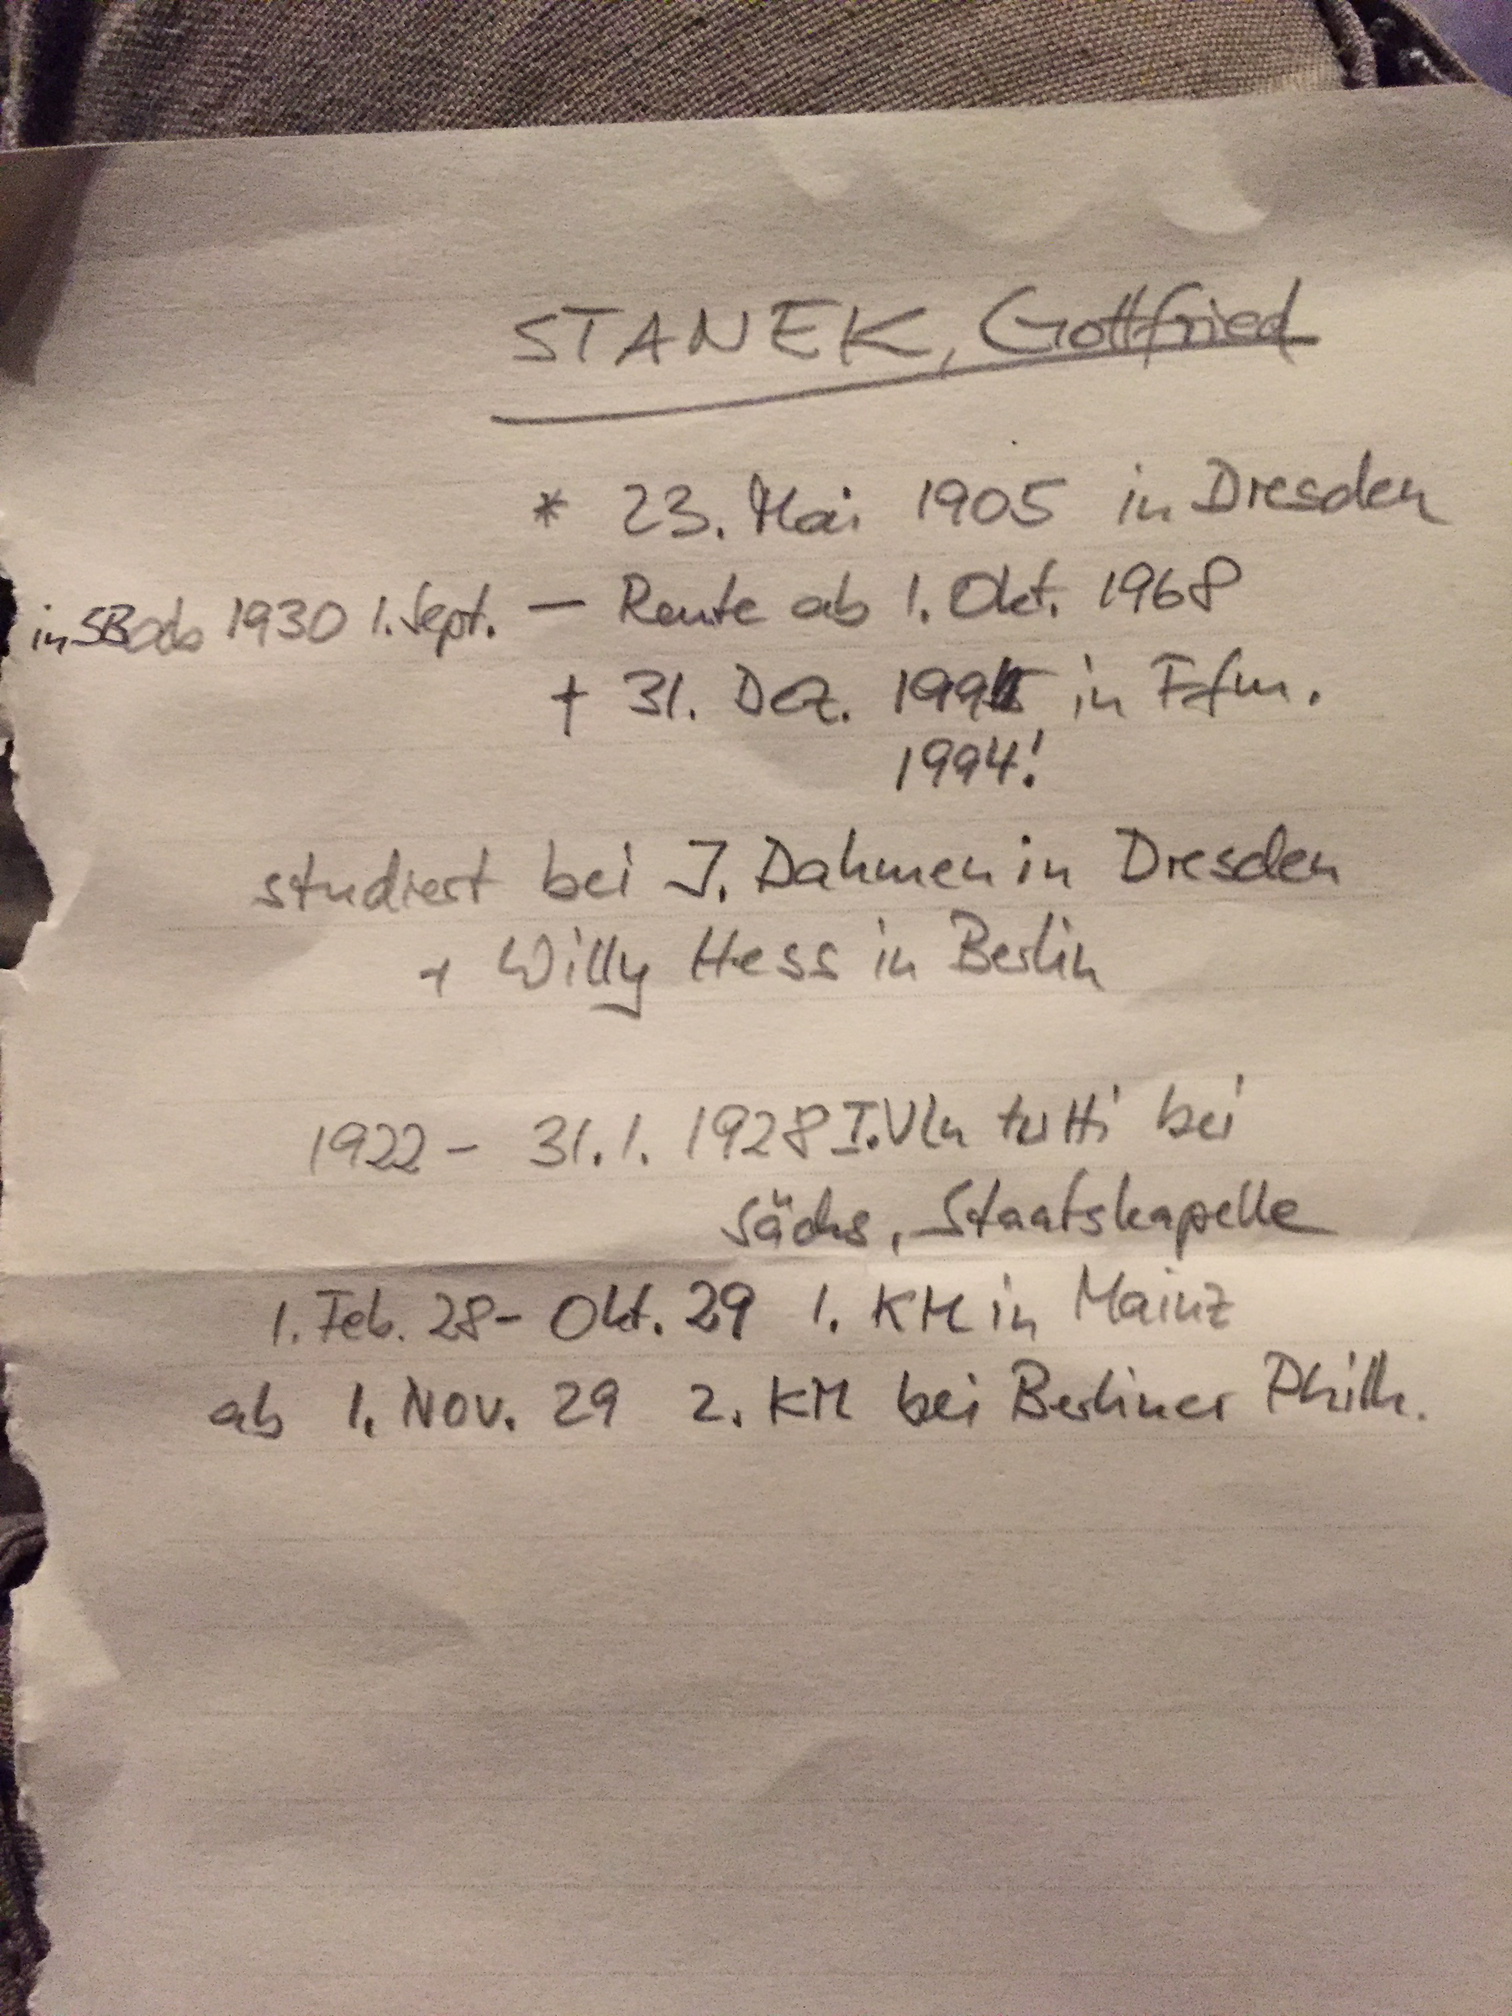 STANEK, Gottfried
* 23. Mai 1905 in Dresden
in SB ab 1930 1. Sept. — Rente ab 1. Okt. 1968
+ 31. Dez. 1994 in Ffm.
1994!
studiert bei J. Dahmen in Dresden
+ Willy Hess in Berlin
1922 - 31.1. 1928 I. Vln tutti bei
Sächs. Staatskapelle
1. Feb. 28 - Okt. 29 1. KM in Mainz
ab 1. Nov. 29 2. KM bei Berliner Philh.